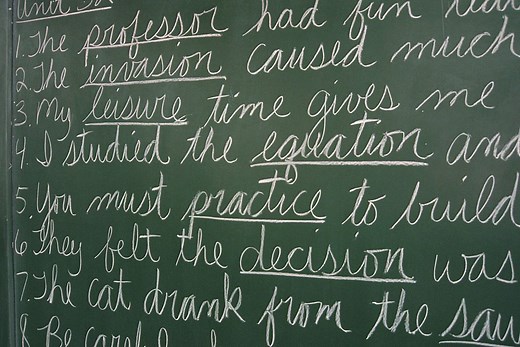 Unit
1. The professor had fun
2. The invasion caused much
3. My leisure time gives me
4. I studied the equation and
5. You must practice to build
6. They felt the decision was
7. The cat drank from the sau
8. Be